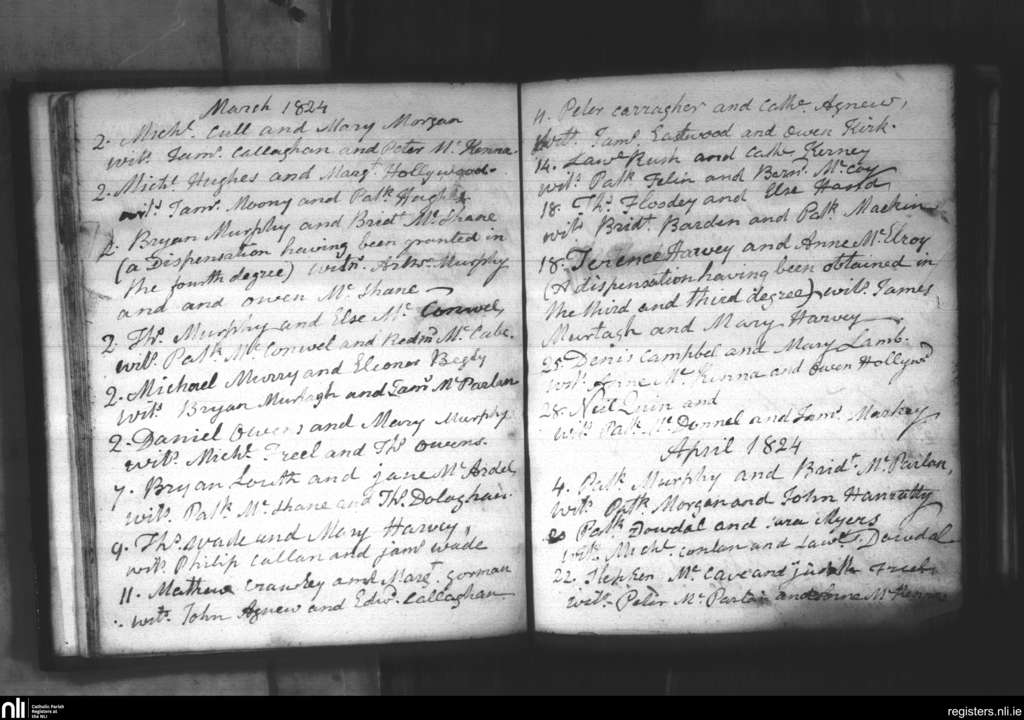 March 1824
2. Michl. Cull and Mary Morgan
wits. Jams. Callaghan and Peter Mc Kenna.
2. Michl Hughes and Margt. Hollywood.
wits. Jams. Moony and Patk. Hughs
2. Bryan Murphy and Bridt Mc Shane
(a Dispensation having been granted in
the fourth degree) witn. Arthr. Murphy
and and Owen Mc Shane
2. Ths. Murphy and Else Mc Conwel,
wits. Patk Mc Conwel and Redmd Mc Cabe.
2. Michael Murry and Eleoner Begly
wits. Bryan Murtagh and Jams. Mc Parlan
2. Daniel Owens and Mary Murphy
wits. Michl. Treel and Ths Owens.
7. Bryan Louth and jane Mc Ardel,
wits. Patk Mc Shane and Ths. Dolaghan
9. Ths. wade and Mary Harvey,
wits. Philip Callan and jams wade
11. Mathew Crawley and Margt. Gorman
wits. John Agnew and Edwd. Callaghan
11. Peter Carragher and Cathe Agnew,
wits. Jams. Eastwood and Owen Kirk.
14. Lawe Rush and Cathe Kerney
wits. Patk Felin and Bernd. Mc Coy
18. Ths. Floodey and Else Hand
wits Bridt. Barden and Patk Mackin
18. Terence Harvey and Anne Mc Elroy
(A dispensation having been obtained in
the third and third degree) wits. James
Murtagh and Mary Harvey
25. Denis Campbel and Mary Lamb.
wits. Anne Mc Kenna and Owen Hollywd
28. Neil Quin and
wits Patk. Mc Donnel and Jams. Markey,
April 1824
4. Patk Murphy and Bridt. Mc Parlan,
wits Patk Morgan and John Hanrattty
Patk Dowdal and Sara Myers
wits. Michl Conlan and Lawe. Dowdal
22. Stephen Mc Cave and judith
wits. Peter Mc Parlan and Anne Mc Kenna
nli
Catholic Parish
Registers at
the NLI
registers.nli.ie